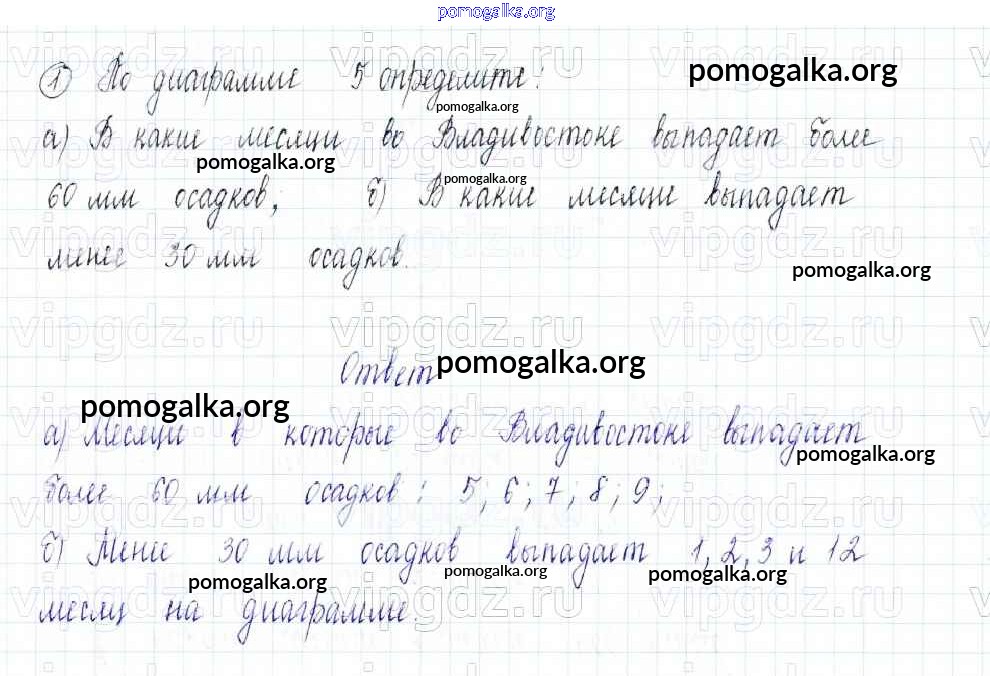 pomogalka.org
① По диаграмме 5 определите:
pomogalka.org
pomogalka.org
а) В какие месяцы во Владивостоке выпадает более
pomogalka.org
pomogalka.org
60 мм осадков; б) В какие месяцы выпадает
менее 30 мм осадков.
pomogalka.org
vipgdz.ru vipgdz.ru vipgdz.ru
Ответ
pomogalka.org
pomogalka.org
а) Месяцы в которые во Владивостоке выпадает
pomogalka.org
более 60 мм осадков: 5; 6; 7; 8; 9;
б) Менее 30 мм осадков выпадает 1, 2, 3 и 12
pomogalka.org pomogalka.org pomogalka.org
месяц на диаграмме.